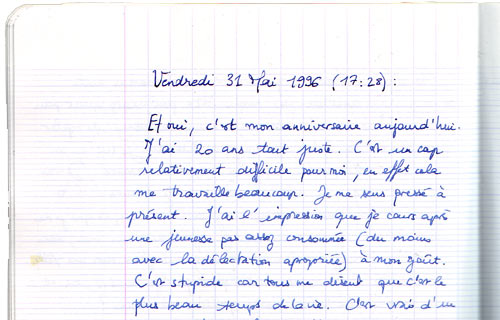 Vendredi 31 Mai 1996 (17:28) :
Et oui, c'est mon anniversaire aujourd'hui.
J'ai 20 ans tout juste. C'est un cap
relativement difficile pour moi, en effet cela
me travaille beaucoup. Je me sens pressé à
présent. J'ai l'impression que je cours après
une jeunesse pas assez consommée (du moins
avec la délectation apropriée) à mon goût.
C'est stupide car tous me disent que c'est le
plus beau temps de la vie. C'est vrai d'un